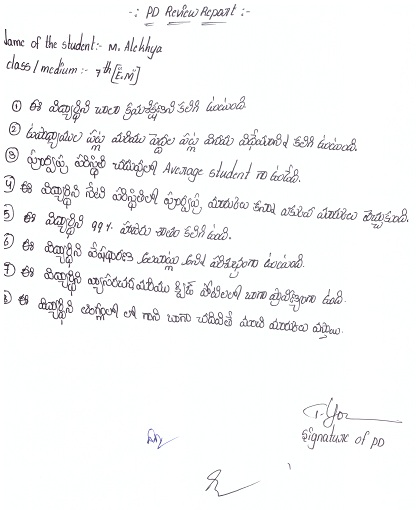 -: PD Review Report :-
Name of the student:- M. Alekhya
class / medium :- 7th [E.M]
① ఈ విద్యార్థిని చాలా క్రమశిక్షణని కలిగి ఉంటుంది.
② ఉపాధ్యాయుల పట్ల మరియు పెద్దల పట్ల వినయ విధేయతని కలిగి ఉంటుంది.
③ పూర్వపు పరిస్థితి చదువులో Average student గా ఉండేది.
4 ఈ విద్యార్థిని నేటి పరిస్థితిలో పూర్వపు మార్కుల కన్నా ఎక్కువ మార్కులు తెచ్చుకుంది.
5 ఈ విద్యార్థిని 99% హాజరు శాతం కలిగి ఉంది.
6 ఈ విద్యార్థిని వేషధారణ పరిశుభ్రంగా ఉంటుంది.
7 ఈ విద్యార్థిని వ్యాసరచన మరియు క్విజ్ పోటీలలో బాగా ఉంది.
8 ఈ విద్యార్థిని లో గాని బాగా చదివితే మంచి మార్కులు వస్తాయి.
Signature of PD